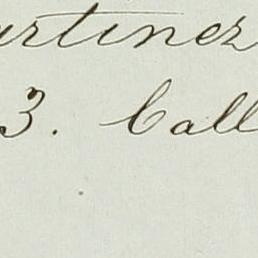 artinez
3. Call